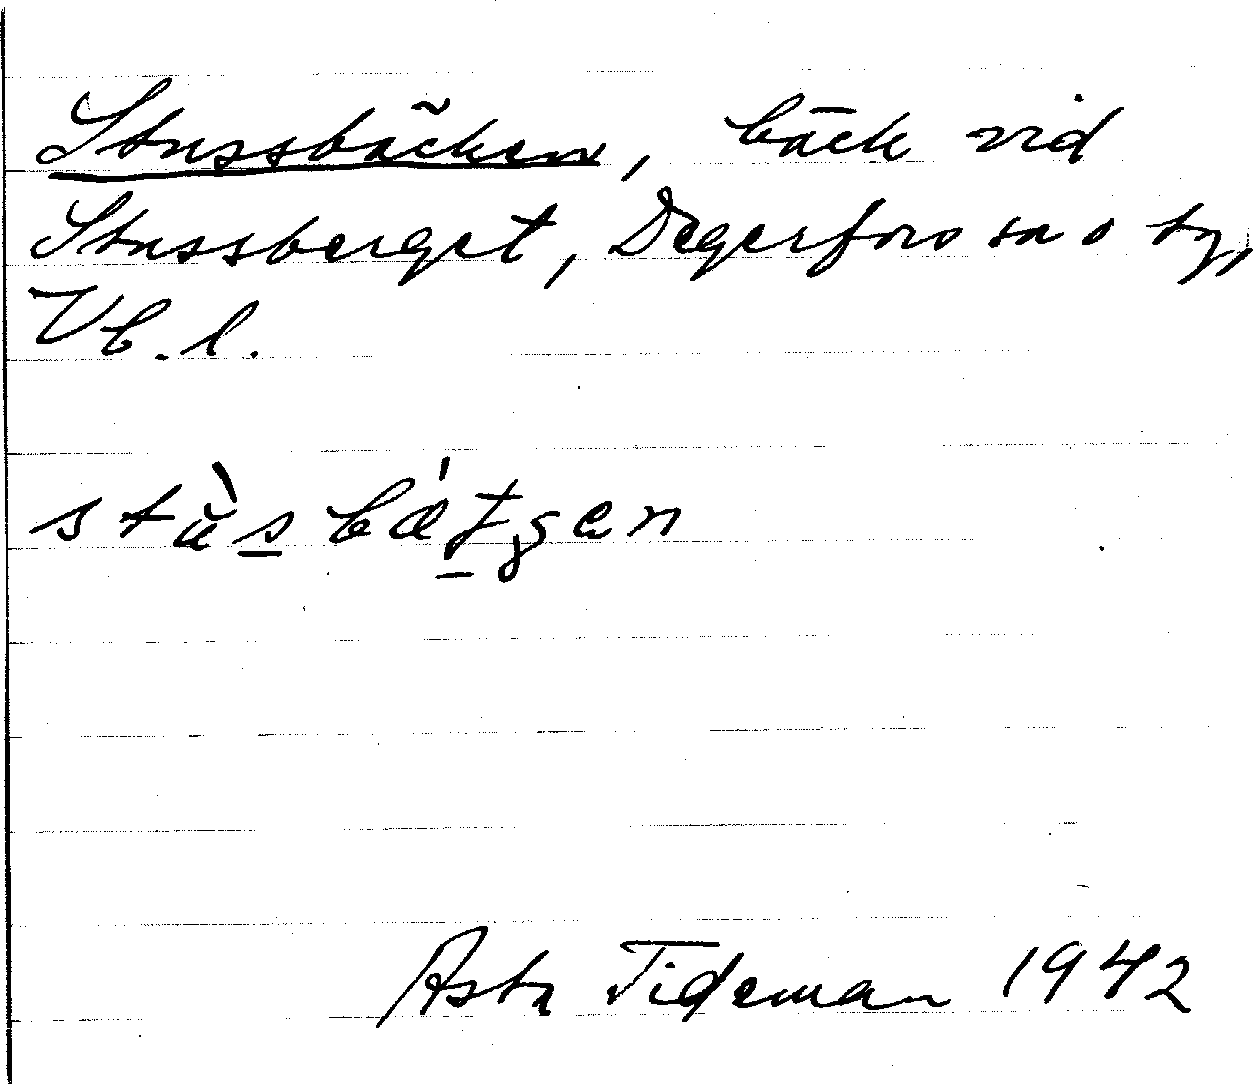 Stussbäcken, bäck vid
Stussberget, Degerfors sn o by,
Vb. l.
stùsbǽtgen
Asta Tideman 1942